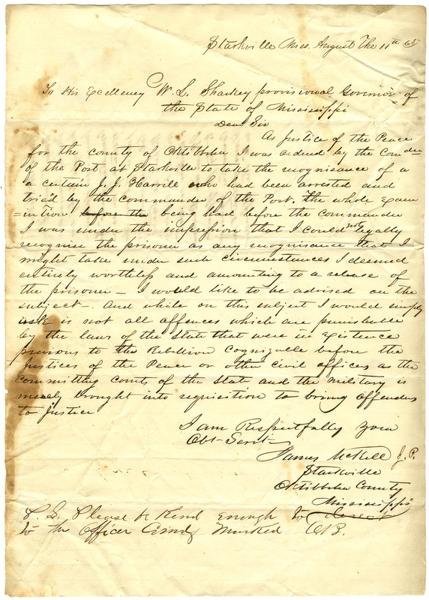 Starkville Miss August The 11th 65
To His Excellency W. L. Sharkey provisional Governor of
the State of Mississippi
Dear Sir
As Justice of the Peace
for the county of Oktibbeha I was ordered by the Comder
of the Post at Starkville to take the recognisance of a
a certain J. J. Harrill who had been arrested and
tried by the commander of the Post, the whole exam
ination before the being had before the Commander
I was under the impression that I could legally
recognise the prisoner as any recognisance that I
might take under such circumstances I deemed
entirely worthless and amounting to a release of
the prisoner – I would like to be advised on the
subject – and while on this subject I would simply
ask is not all offences which are punishable
by the laws of the State that were in existence
previous to the Rebellion cognizable before the
Justices of the Peace or other civil offices as the
committing courts of the State and the military is
merely brought into requisition to bring offenders
to Justice
I am Respectfully your
Obt Servt
James McKell J. P.
Starkville
Oktibbeha County
Mississippi
P. S. Please be kind enough to
to the Officer Comdg